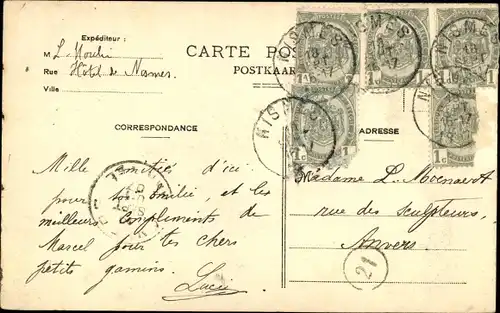 Expéditeur :
M L. Moulin
Rue Hôtel de Nismes
Ville
CARTE PO
POSTKAAR
CORRESPONDANCE
ADRESSE
Mille amitiés d'ici
pour toi Emilie, et les
meilleurs compliments de
Marcel pour tes chers
petits gamins.
Lucie
Madame L. Moenaert
rue des Sculpteurs,
Anvers
21
NISMES
NISMES
NISMES
1c
1c
1c